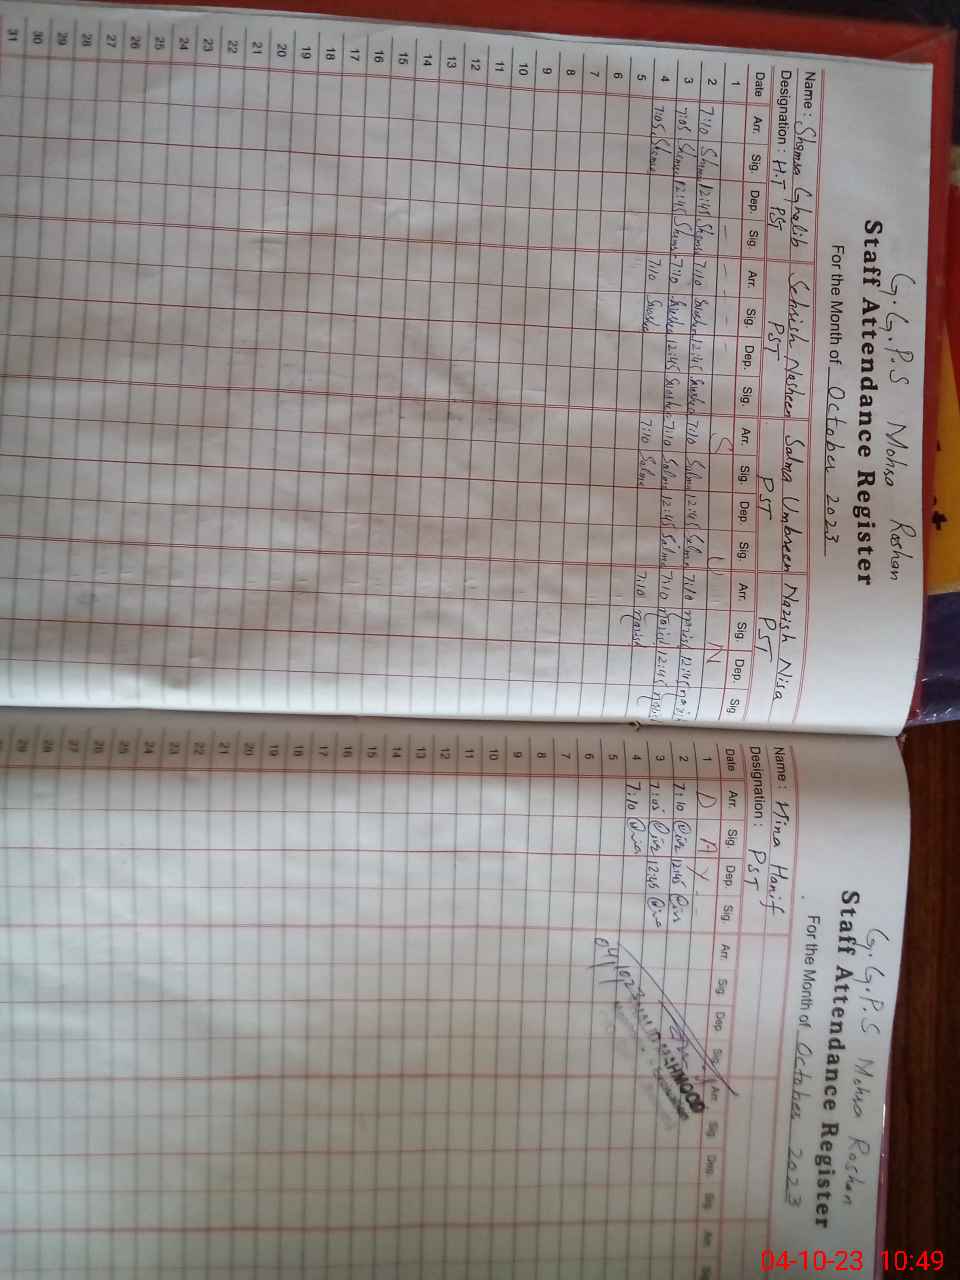 G.G.P.S Mohra Roshan
Staff Attendance Register
For the Month of October 2023
Name : Shamsa Ghalib Sehrish Nasheen Salma Umbreen Nazish Nisa
Designation : H.T PST PST PST PST
Date Arr. Sig. Dep. Sig. Arr. Sig. Dep. Sig. Arr. Sig. Dep. Sig. Arr. Sig. Dep. Sig
1 - - - - S U N
2 7:10 12:45 7:10 12:45 7:10 Salma 12:45 Salma 7:10 Nazish 12:45
3 7:05 Shamsa 12:45 Shamsa 7:10 12:45 7:10 Salma 12:45 Salma 7:10 Nazish 12:45 Nazish
4 7:05 Shamsa 7:10 7:10 Salma 7:10 Nazish
5
6
7
8
9
10
11
12
13
14
15
16
17
18
19
20
21
22
23
24
25
26
27
28
29
30
31
G.G.P.S Mohra Roshan
Staff Attendance Register
For the Month of October 2023
Name : Hina Hanif
Designation : PST
Date Arr. Sig. Dep. Sig. Arr. Sig. Dep. Sig. Arr. Sig. Dep. Sig. Arr.
1 D A Y - -
2 7:10 12:45
3 7:05 12:45
4 7:10
5
6
7
8
9
10
11
12
13
14
15
16
17
18
19
20
21
22
23
24
25
26
27
28
29
04/10/23
04-10-23 10:49